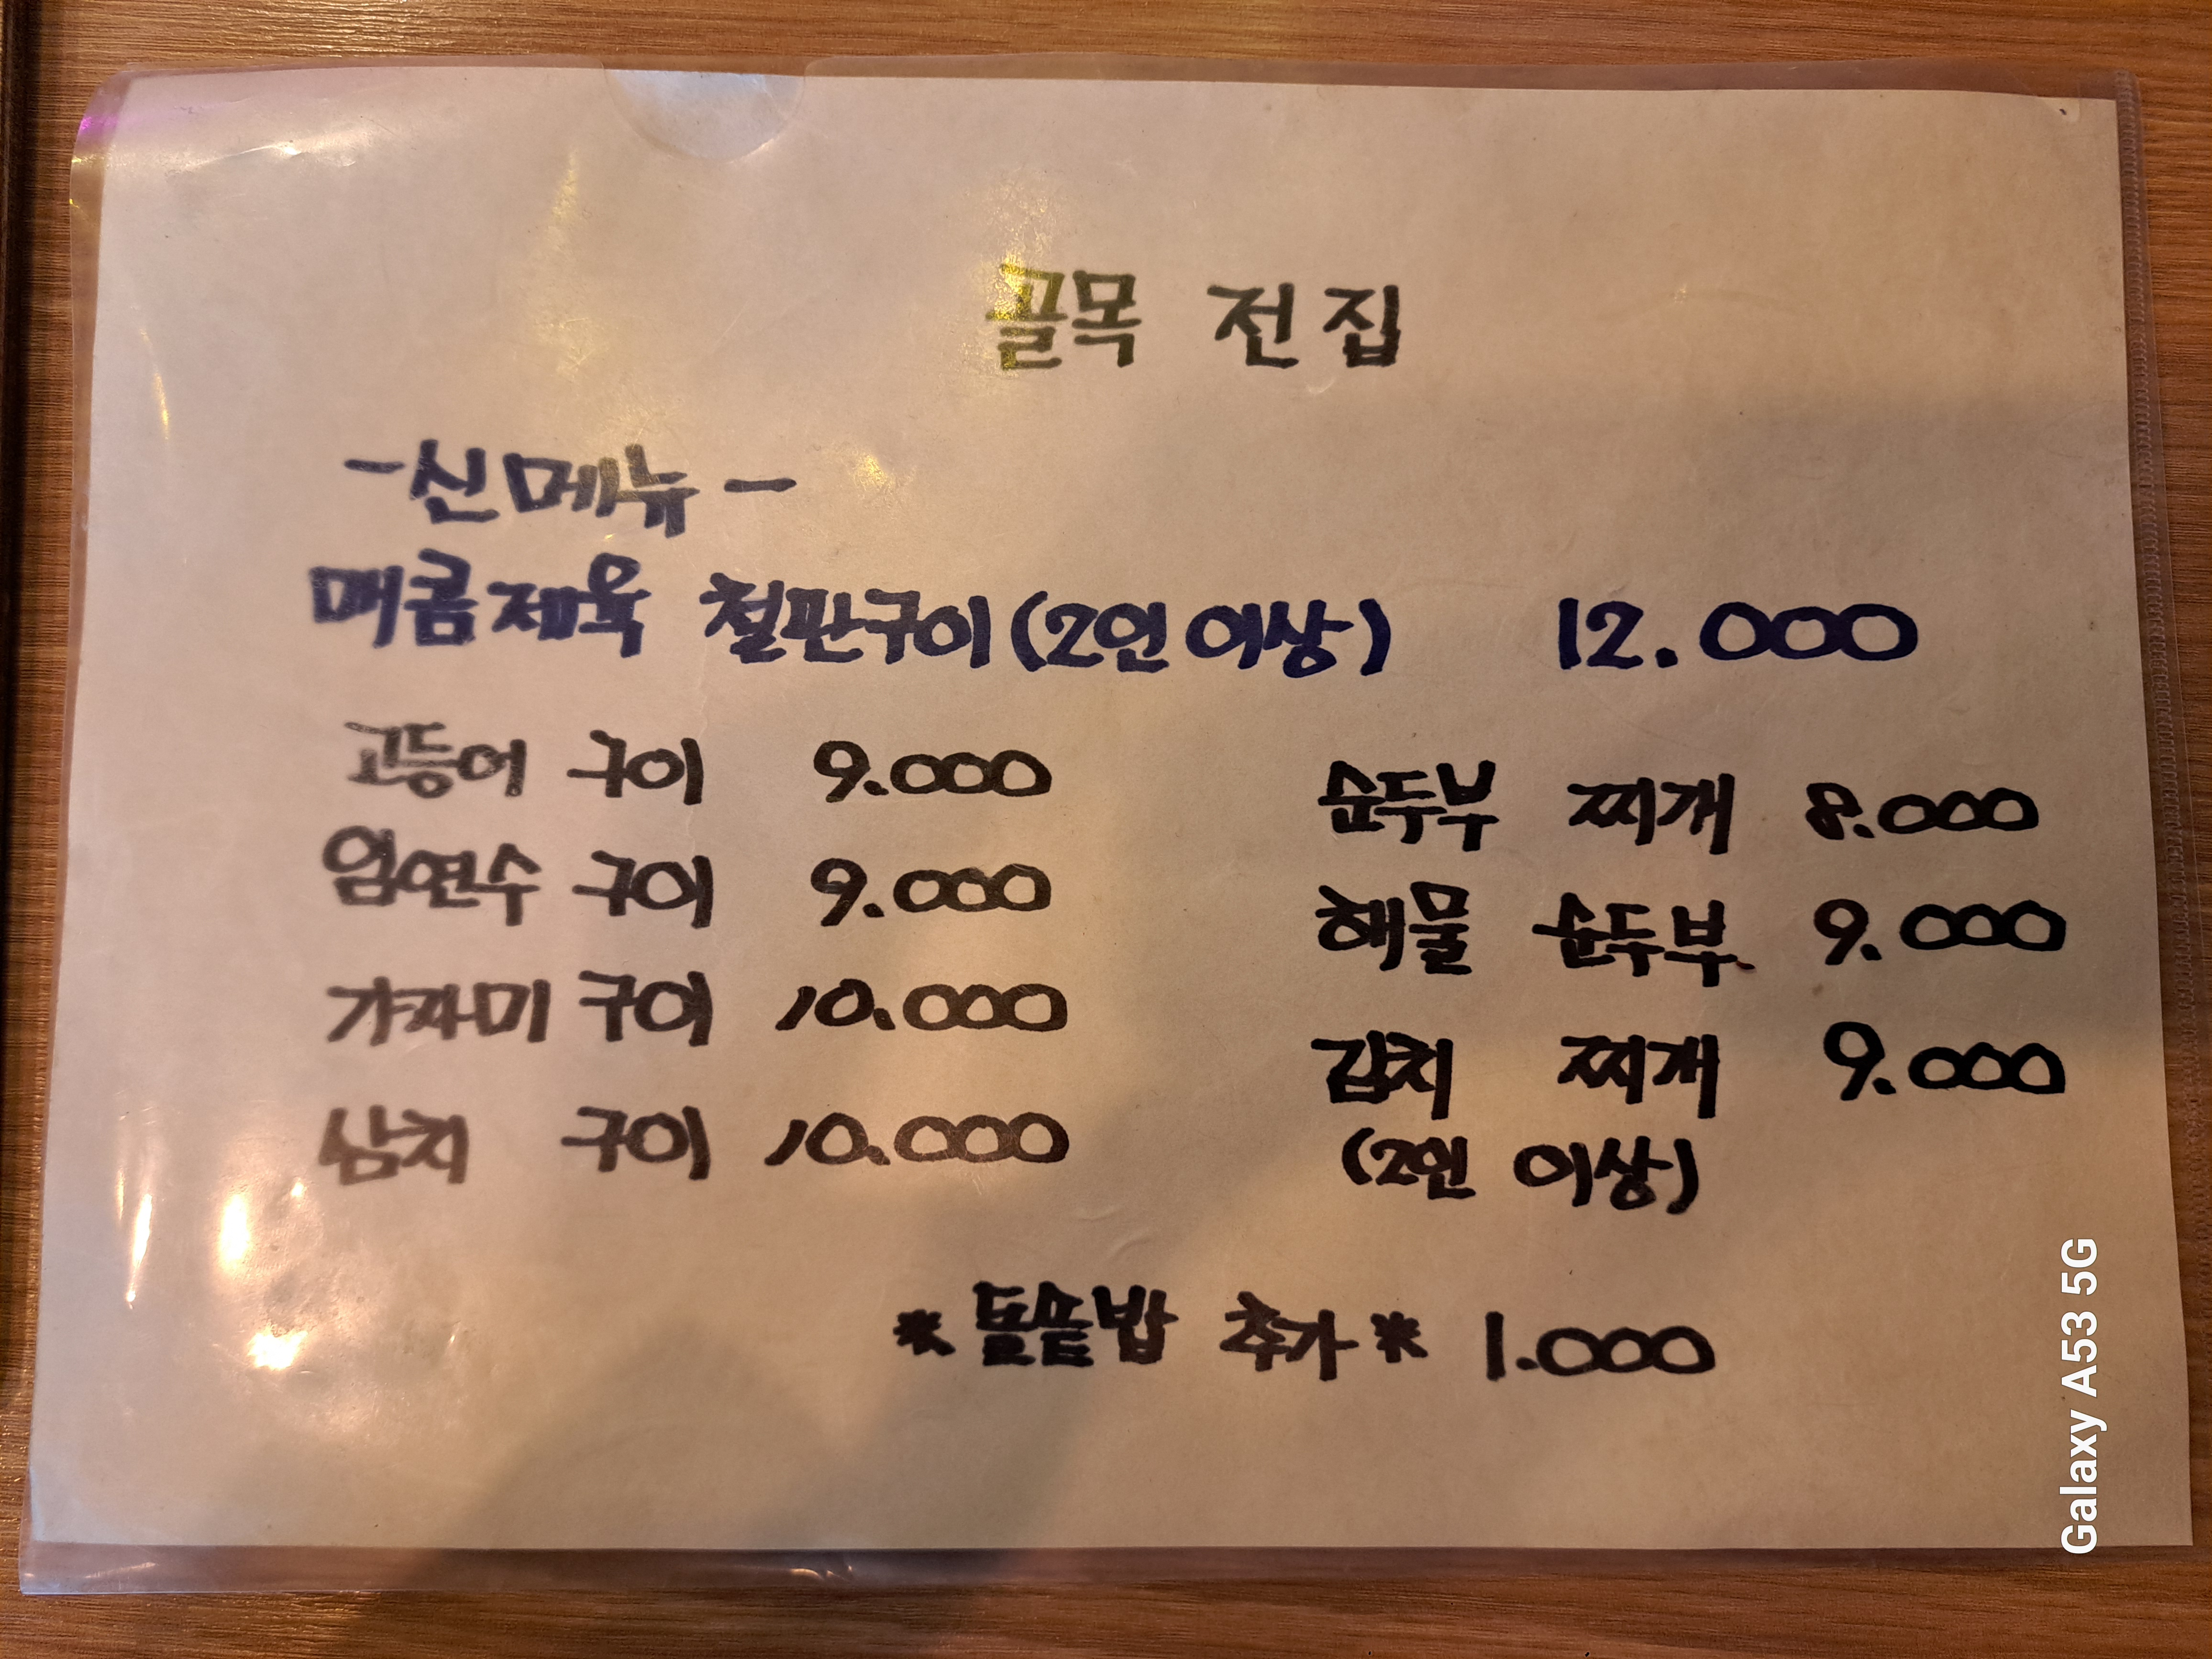 골목 전집
-신메뉴-
매콤제육 철판구이(2인이상) 12.000
고등어 구이 9.000
임연수 구이 9.000
가자미 구이 10.000
삼치 구이 10.000
순두부 찌개 8.000
해물 순두부 9.000
김치 찌개 9.000
(2인 이상)
*돌솥밥 추가* 1.000
Galaxy A53 5G